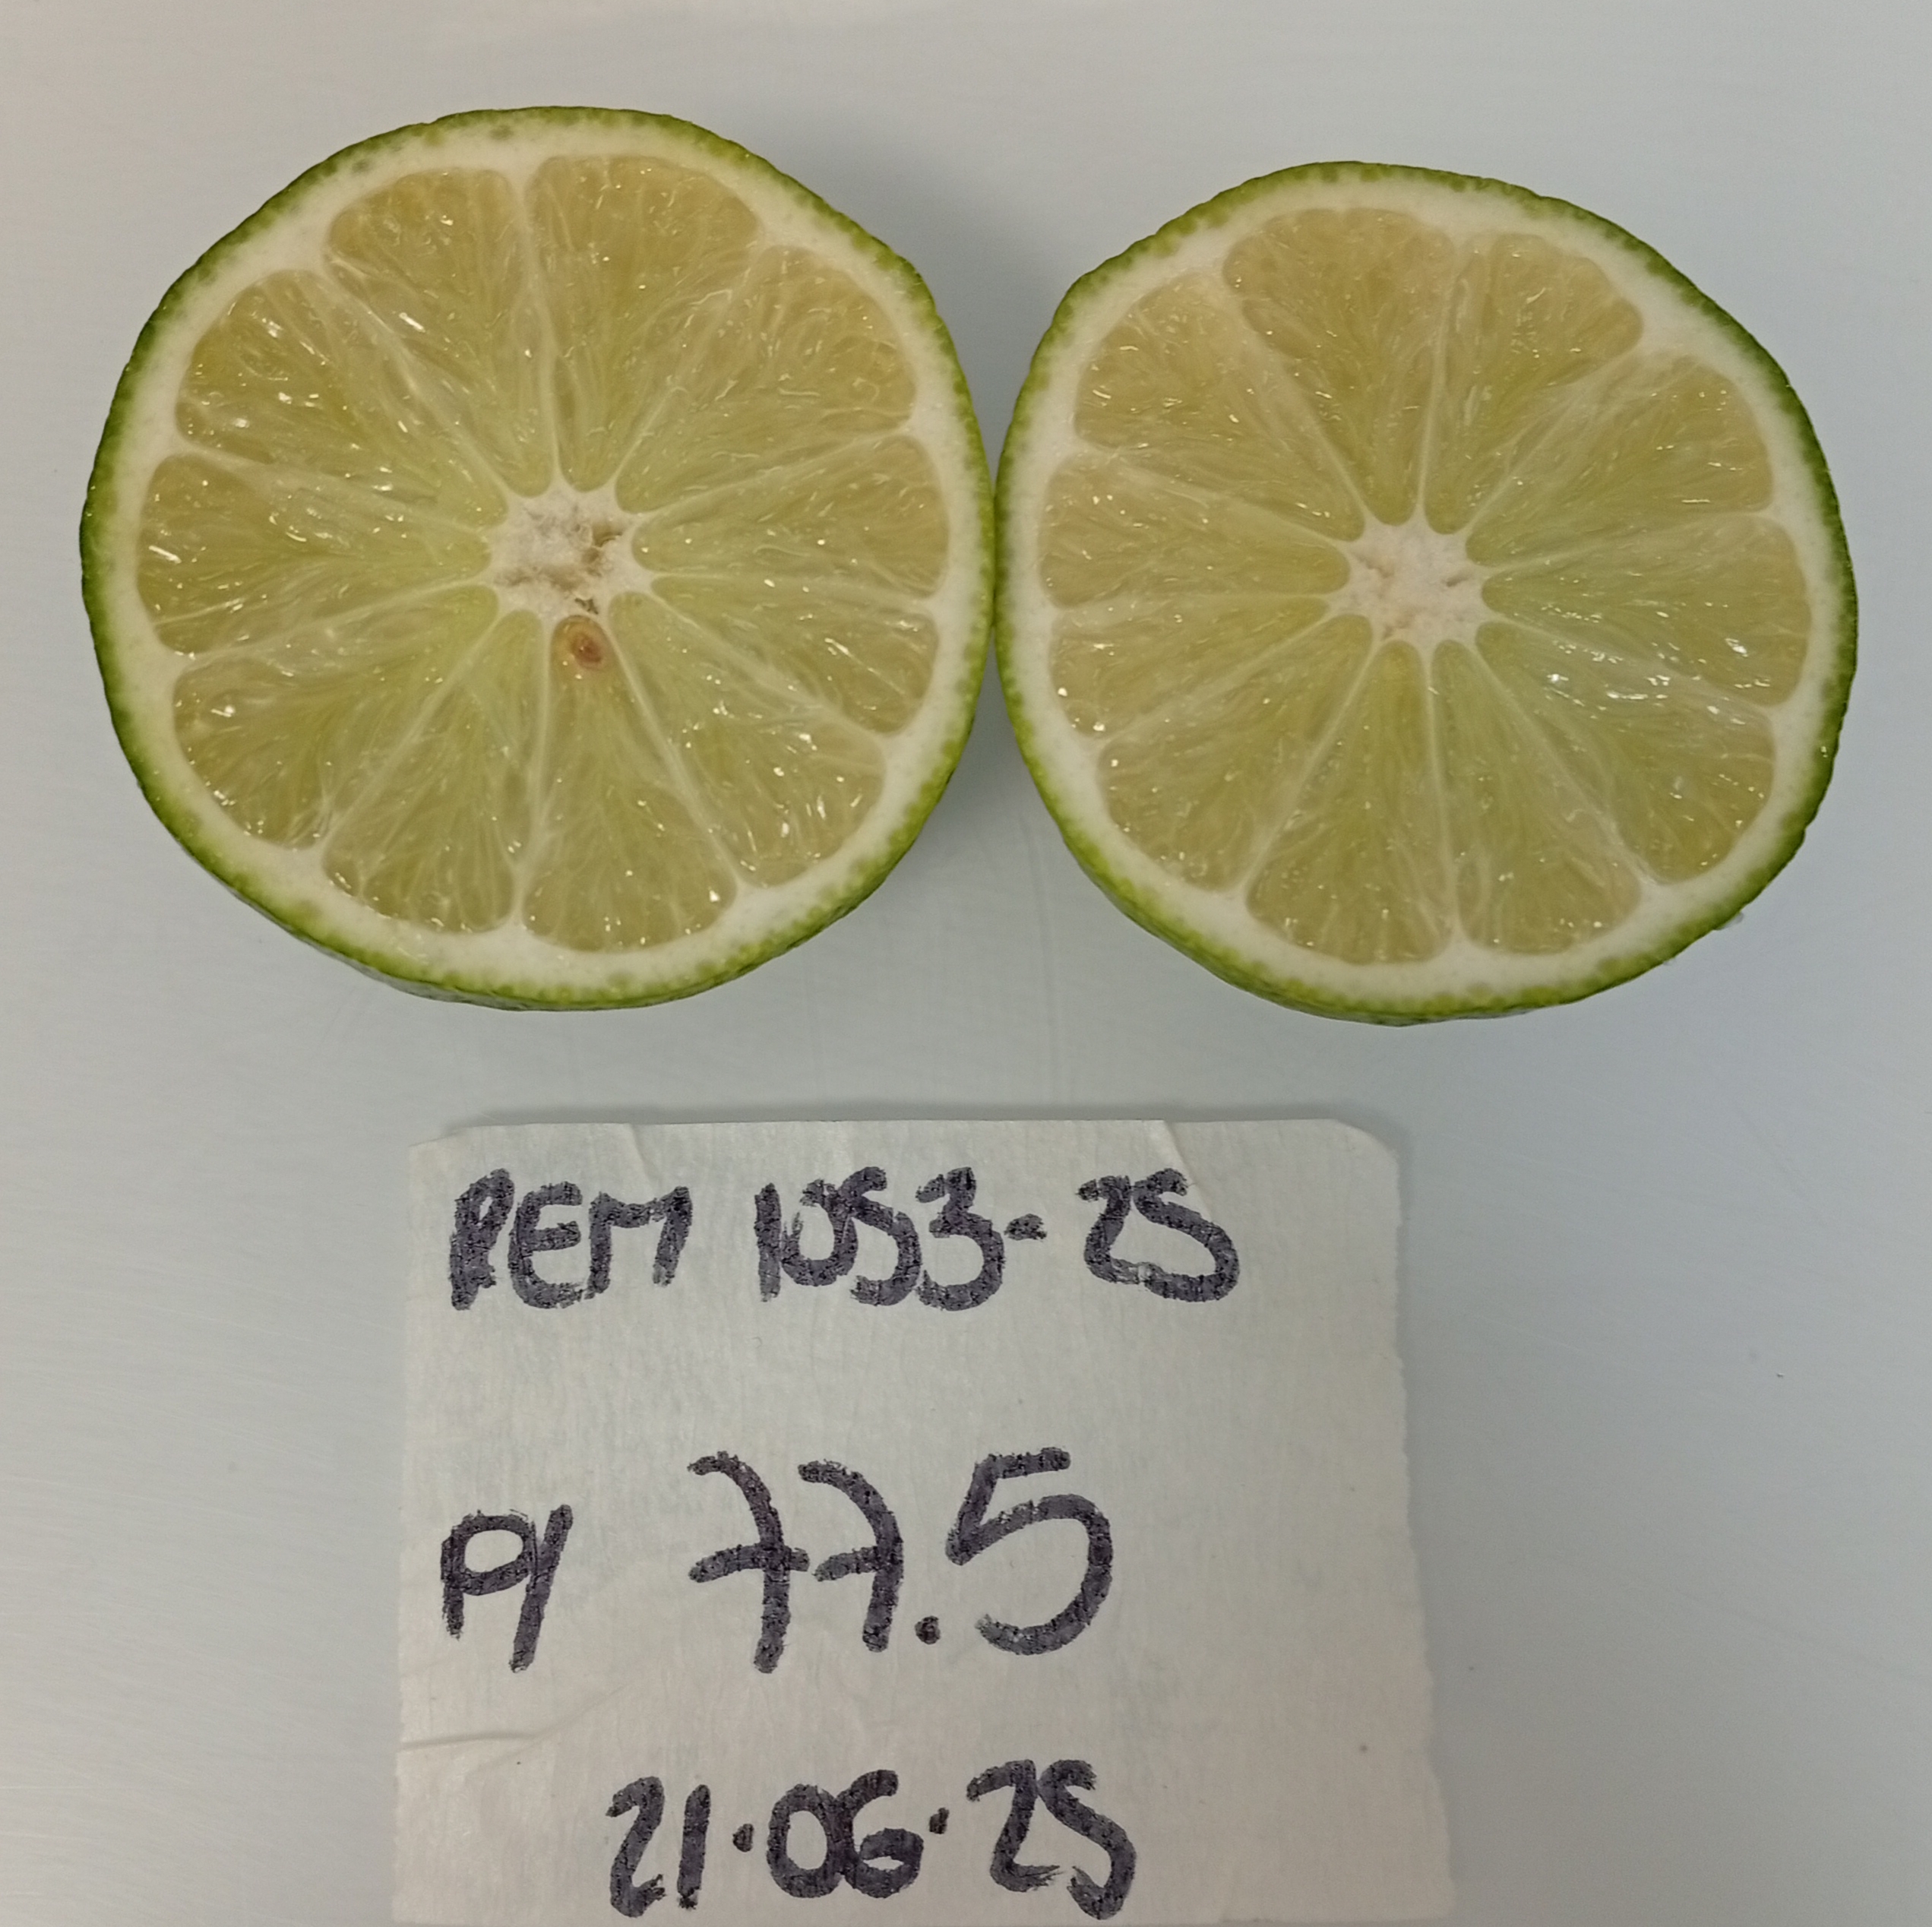 REM 1053-25
P/ 77.5
21.06.25